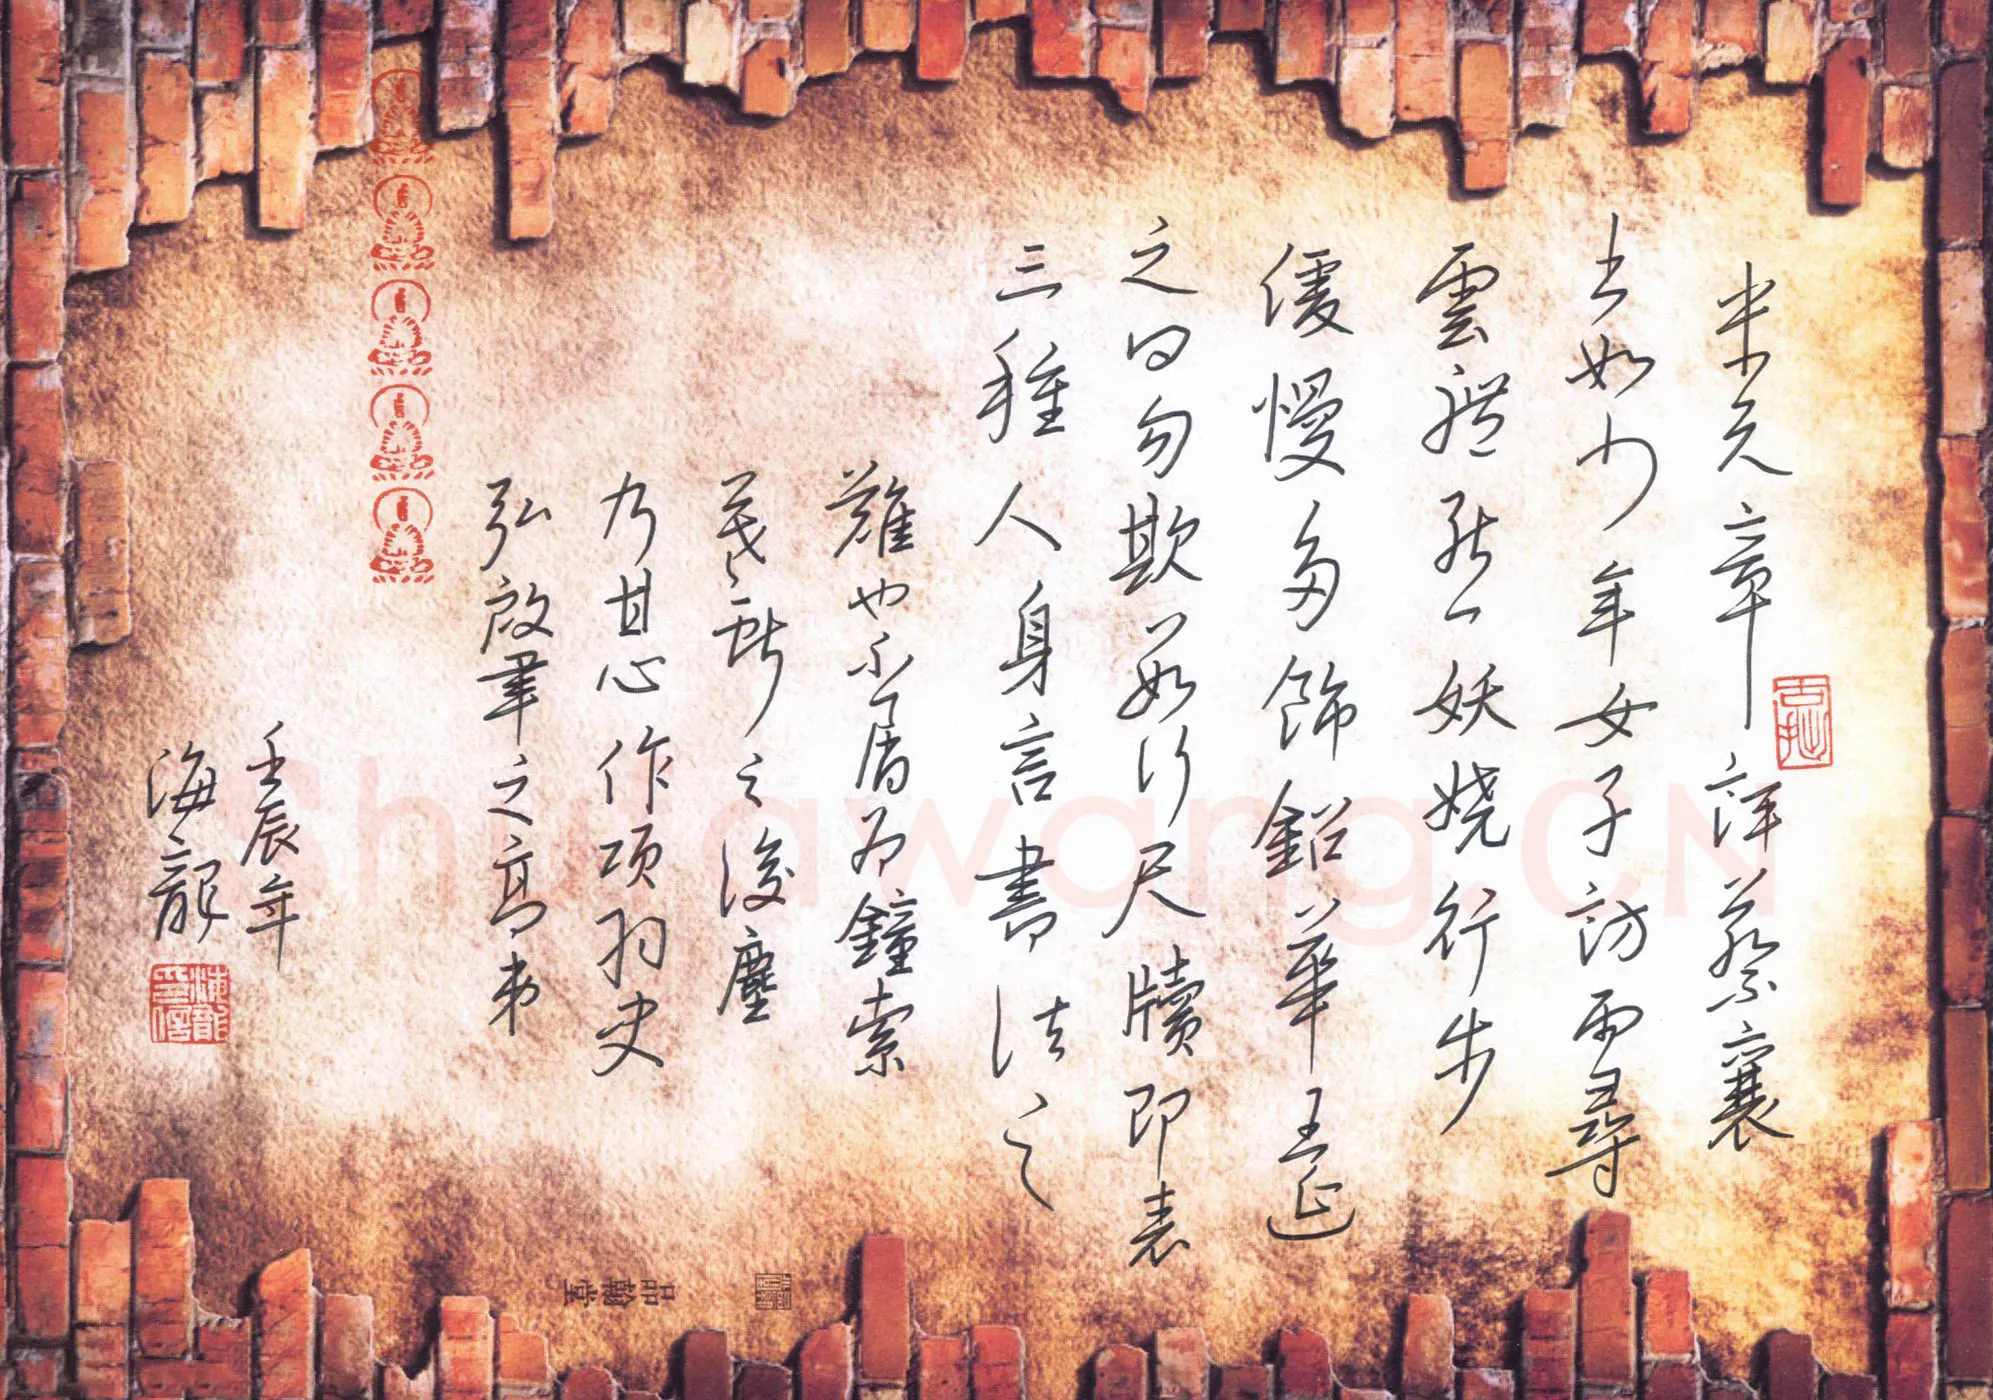 米元章評蔡襄
书如少年女子訪雨尋
雲體態妖嬈行步
緩慢多飾鉛華王延
之曰勿欺数行尺牘即表
三種人身言書法之
難也不屑為鐘索
羲獻之後塵
乃甘心作項羽史
弘啟筆之高弟
壬辰年
海龍
品翰堂
Shufawang.CN